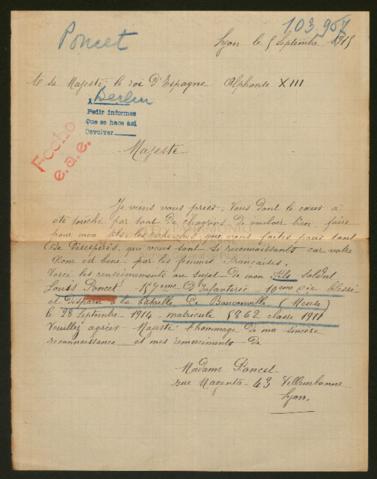 Poncet
103,957
Lyon le 5 Septembre 1915
à sa Majesté le roi D'Espagne Alphonse XIII
à Berlin
Pedir informes
Que se hace así
Devolver
Fecho
e.a.e.
Majesté
Je viens vous prier, Vous dont le cœur a
été touché par tant de chagrins de vouloir bien faire
pour mon fils les recherches que vous faites pour tant
de désespérés, qui vous sont si reconnaissants car votre
nom est béni par les femmes Françaises.
Voici les renseignements au sujet de mon fils soldat
Louis Poncet 157ème D'Infanterie 10ème Cie blessé
et disparu à la Chapelle de (Meuse)
le 28 Septembre 1914 - matricule 5862 classe 1911
Veuillez agréer Majesté l'hommage de ma sincère
reconnaissance et mes remerciements de
Madame Poncet
rue Magenta 43 Villeurbanne
Lyon